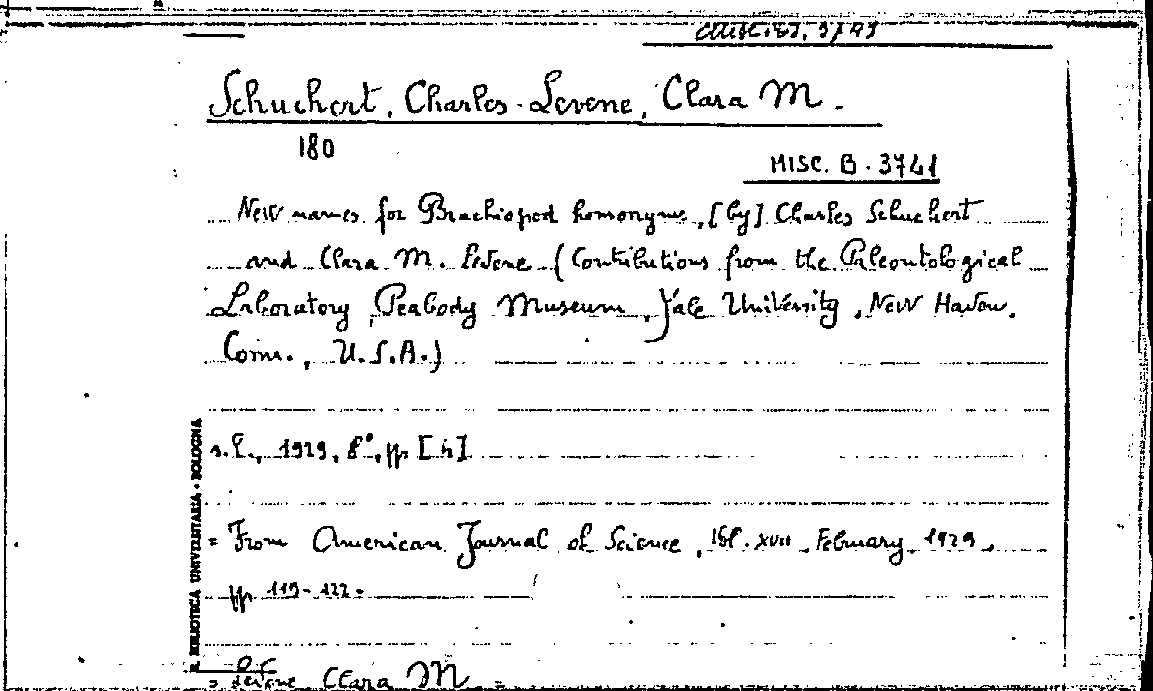 Schuchert, Charles - Levene, Clara M.
180
MISC. B. 3741
New names for Brachiopod homonyms, [by] Charles Schuchert
and Clara M. Levene (Contributions from the Paleontological
Laboratory, Peabody Museum, Yale University, New Haven,
Conn., U.S.A.)
s.l., 1929, 8°, pp. [4]
= From American Journal of Science, Vol. XVII, February, 1929,
pp. 119-122.
R. BIBLIOTECA UNIVERSITARIA - BOLOGNA
= Levene Clara M. =